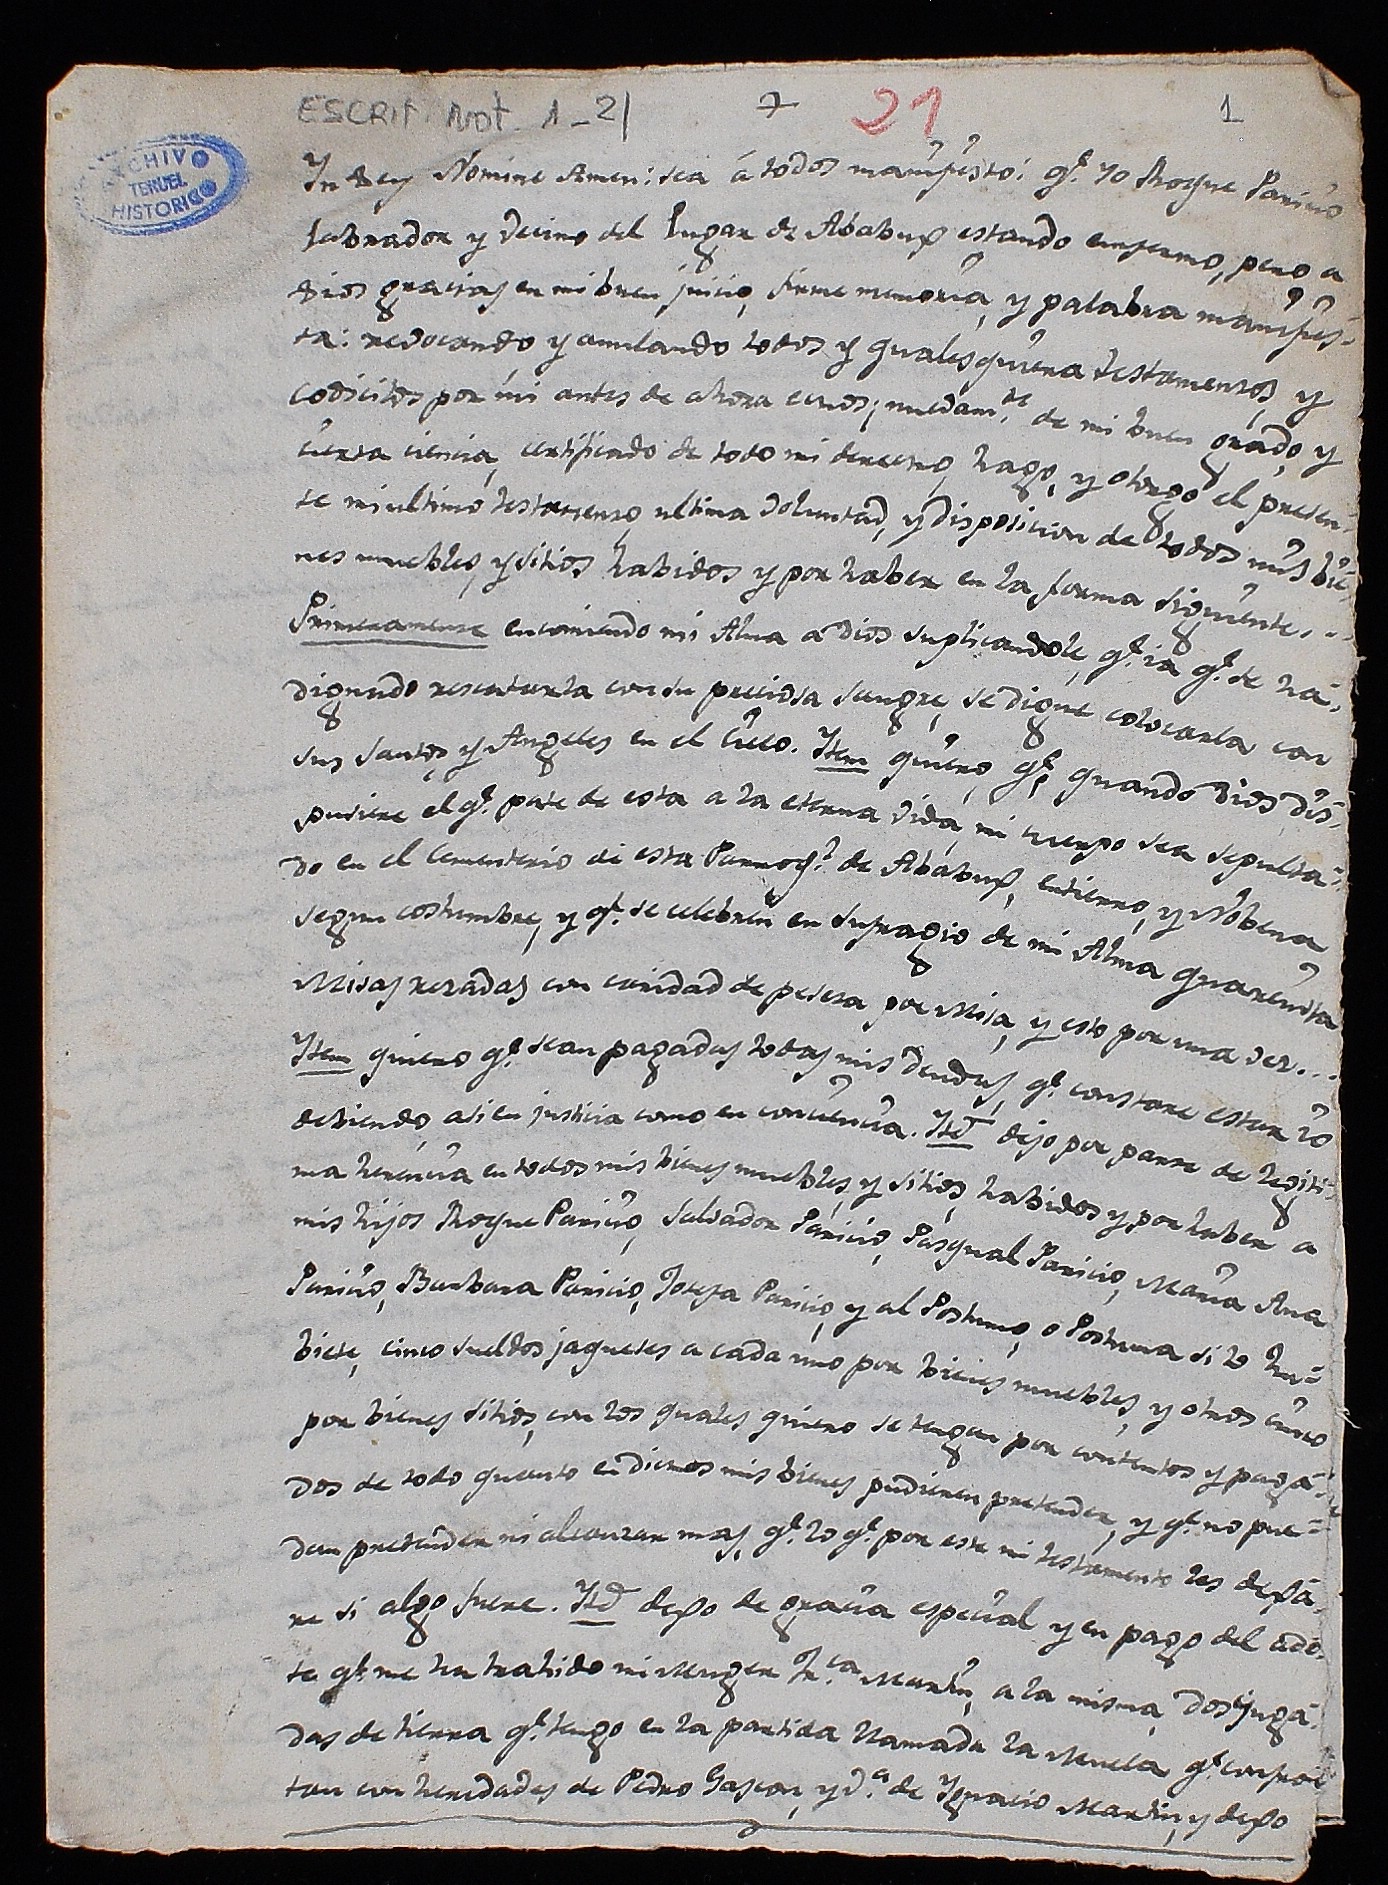 ESCRIT. Not. 1-21 7 21 1
ARCHIVO
TERUEL
HISTORICO
In Dey Nomine Amen: sea á todos manifiesto: qe. yo Roque Paricio
labrador y Vecino del Lugar de Ababuj estando enfermo, pero a
Dios gracias en mi buen juicio, firme memoria, y palabra manifies-
ta: revocando y anulando todos y qualesquiera testamentos, y
codicilos por mi antes de ahora echos; nuebam.te de mi buen grado, y
cierta ciencia, certificado de todo mi derecho, hago, y otorgo el presen-
te mi ultimo testamento, ultima Voluntad, y disposicion de todos mis bie-
nes muebles, y sitios habidos y por haber en la forma siguiente...
Primeramente encomiendo mi Alma a Dios suplicandole, qe. ia qe. se ha-
dignado rescatarla con su preciosa sangre, se digne colocarla con
sus Santos, y Angeles en el Cielo. Item quiero, qe. quando Dios dis-
pusiere el qe. pase de esta a la eterna vida, mi cuerpo sea sepulta-
do en el Cementerio de esta Parroq.a de Ababuj, entierro, y Nobena
segun costumbre, y qe. se celebren en sufragio de mi Alma quarenta
Misas rezadas con caridad de peseta por Misa, y esto por una vez...
Item quiero qe. sean pagadas todas mis deudas, qe. constare estar io
debiendo, asi en justicia como en conciencia. Itt. dejo por parte de legiti-
ma herencia en todos mis bienes muebles, y sitios, habidos y por haber a
mis hijos Roque Paricio, Salvador Paricio, Pasqual Paricio, Maria Ana
Paricio, Barbara Paricio, Josefa Paricio, y al Postumo, o Postuma si lo hu-
biese, cinco sueldos jaqueses a cada uno por bienes muebles, y otros cinco
por bienes sitios, con los quales quiero se tengan por contentos y paga-
dos de todo quanto en dichos mis bienes pudieren pretender, y qe. no pue-
dan pretender ni alcanzar mas, qe. lo qe. por este mi testamento les deja-
re si algo fuere. Itt. dejo de gracia especial y en pago del ado-
te qe. me ha trahido mi Muger Fr.ca Martin, a la misma, dos juga-
das de tierra qe. tengo en la partida llamada la Muela qe. confron-
tan con heredades de Pedro Gascon, y V.a de Ygnacio Martin, y dejo